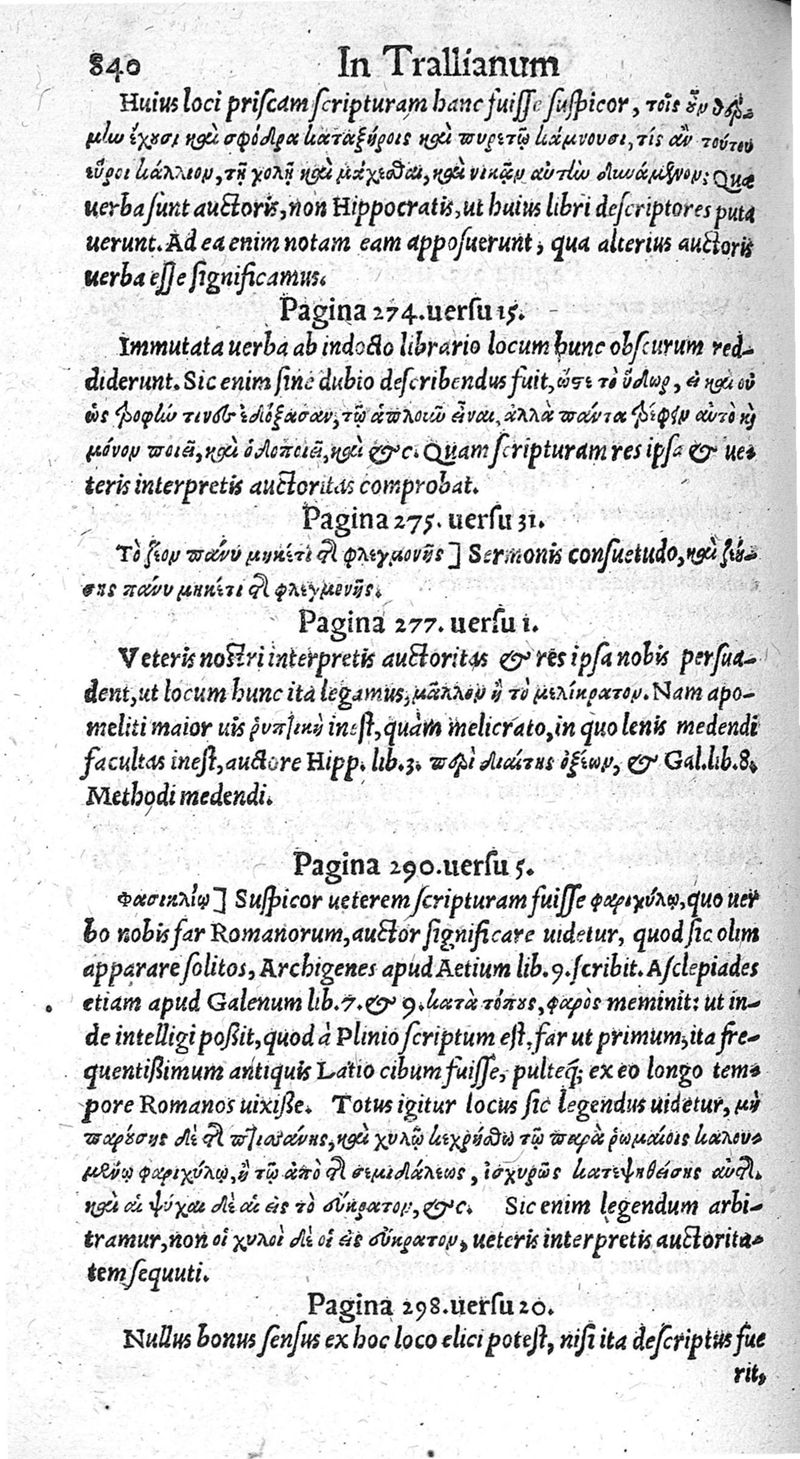 840 In Trallianum
Huius loci priscam scripturam hanc fuisse suspicor, τοῖς οὖν θερ-
μὴν ἔχουσι καὶ σφόδρα κατάξηροις καὶ πυρετῷ κάμνουσι, τίς ἂν τούτου
εὕροι κάλλιον, τῇ χολῇ καὶ μάχεσθαι, καὶ νικᾷν αὐτὴν δυνάμενον; Quæ
uerba sunt auctoris, non Hippocratis, ut huius libri descriptores puta
uerunt. Ad ea enim notam eam apposuerunt, qua alterius auctoris
uerba esse significamus.
Pagina 274. uersu 15.
Immutata uerba ab indocto librario locum hunc obscurum red-
diderunt. Sic enim sine dubio describendus fuit, ὥστε τὸ ὕδωρ, εἰ καὶ οὐ
ὡς τροφὴν τινὲς ἐδόξασαν, τῷ ἁπλοῦν εἶναι, ἀλλὰ πάντα τρέφειν αὐτὸ καὶ
μόνον ποιεῖ, καὶ ὁδοποιεῖ, καὶ &c. Quam scripturam res ipsa & ue-
teris interpretis auctoritas comprobat.
Pagina 275. uersu 31.
Τὸ ζέον πάνυ μηκέτι τῆς φλεγμονῆς] Sermonis consuetudo, καὶ ζεύ-
σης πάνυ μηκέτι τῆς φλεγμονῆς.
Pagina 277. uersu 1.
Veteris nostri interpretis auctoritas & res ipsa nobis persua-
dent, ut locum hunc ita legamus, μᾶλλον ἢ τὸ μελίκρατον. Nam apo-
meliti maior uis ῥυπτικὴ inest, quàm melicrato, in quo lenis medendi
facultas inest, auctore Hipp. lib. 3. περὶ διαίτης ὀξέων, & Gal. lib. 8.
Methodi medendi.
Pagina 290. uersu 5.
Φασικλίῳ] Suspicor ueterem scripturam fuisse φαριχύλῳ, quo uer
bo nobis far Romanorum, auctor significare uidetur, quod sic olim
apparare solitos, Archigenes apud Aetium lib. 9. scribit. Asclepiades
etiam apud Galenum lib. 7. & 9. κατὰ τόπους, φαρὸς meminit: ut in-
de intelligi poßit, quod à Plinio scriptum est, far ut primum, ita fre-
quentißimum antiquis Latio cibum fuisse, pulteq́; ex eo longo tem-
pore Romanos uixiße. Totus igitur locus sic legendus uidetur, μὴ
παρούσης δὲ τῆς πτισάνης, καὶ χυλῷ κεχρήσθω τῷ παρὰ ῥωμαίοις καλου-
μένῳ φαριχύλῳ, ἢ τῷ ἀπὸ τῆς σεμιδάλεως, ἰσχυρῶς κατεψηθείσης αὐτῆς.
καὶ αἱ ψύχαι δὲ αἱ εἰς τὸ σύκρατον, &c. Sic enim legendum arbi-
tramur, non οἱ χυλοὶ δὲ οἱ εἰς σύκρατον, ueteris interpretis auctorita-
tem sequuti.
Pagina 298. uersu 20.
Nullus bonus sensus ex hoc loco elici potest, nisi ita descriptus fue
rit,